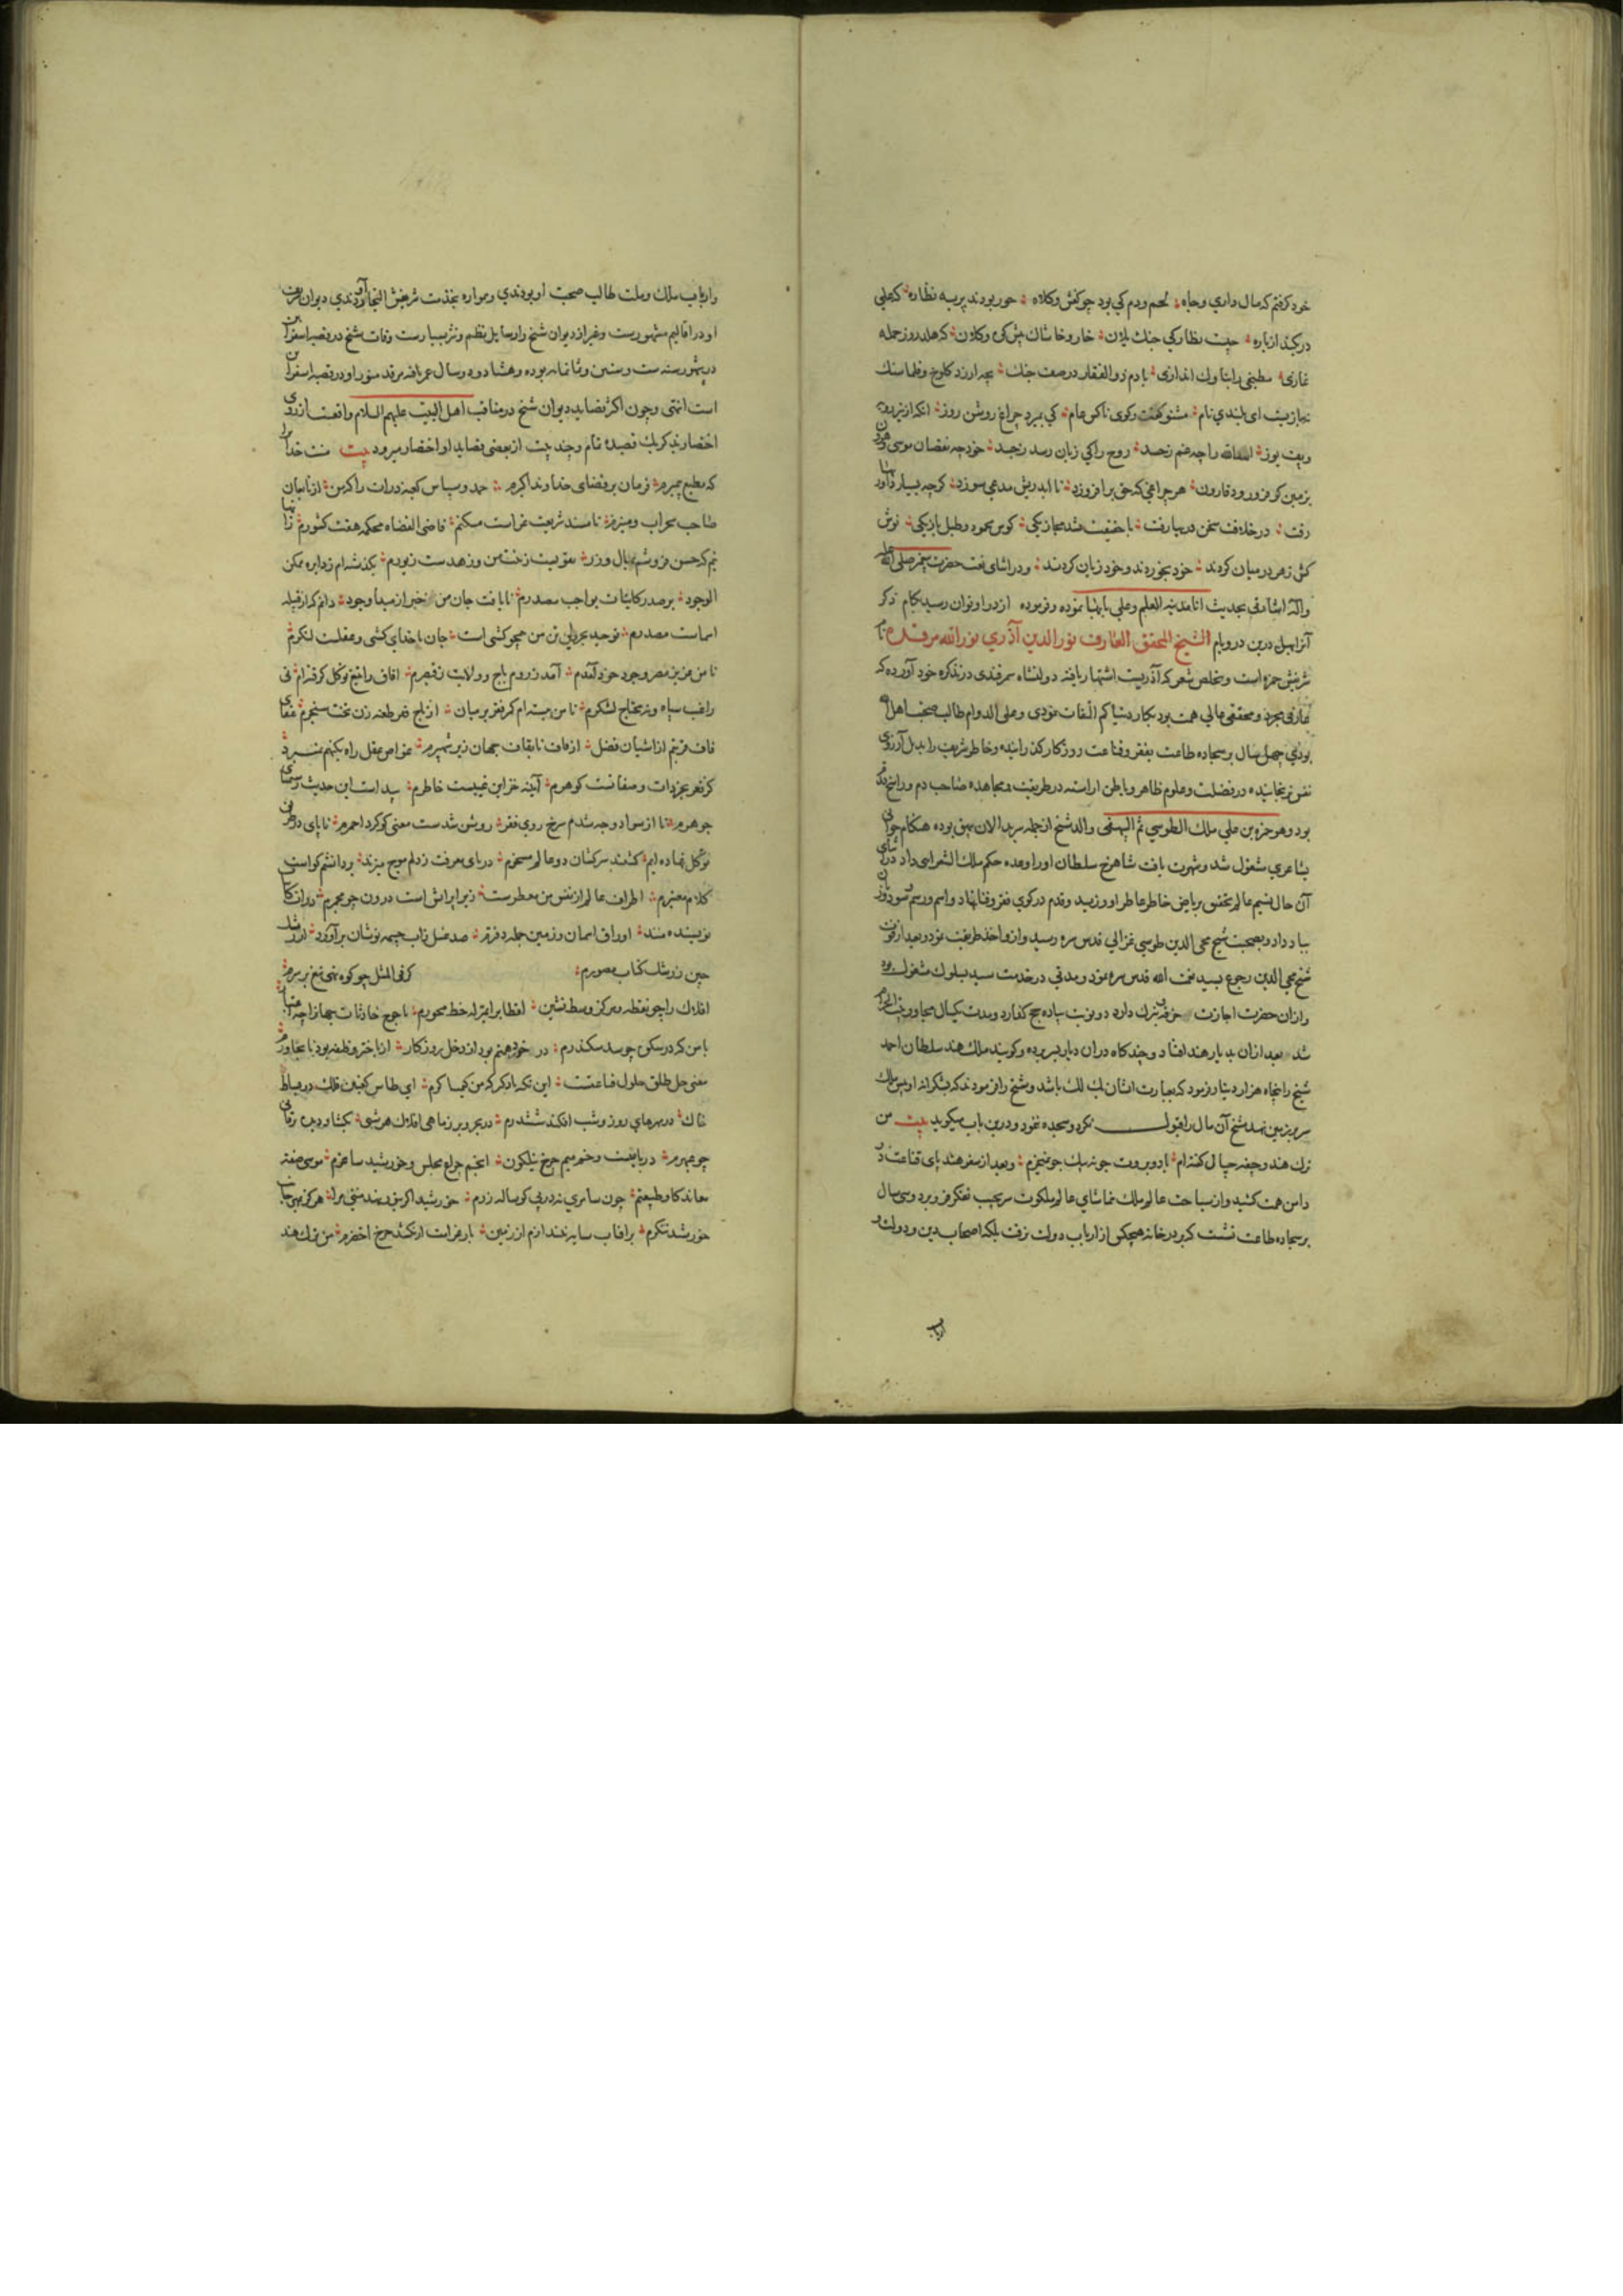 خود گرفتم که مال داری وجاه لحم ودم کی بود چو کفش وکلاه حور بودند پریه نظاره که علی
درکند ازباره چیست نظارکی جنك یلان خار وخاشاك پیش کوه وکلان که هلد روز حمله
غازی مطبخی رابناوك اندازی یا دم ذو الفقار در صف جنك بچه ارزد کلوخ وقلماسنك
ای بلندی نام مشنو کفت وکوی ناکس عام کی بمیرد چراغ روشن روز انکه از تیر
اسد الله را چه غم زحسد روح را کی زیان رسد زحسد خود چه نقصان موسی وهارون
بزمین کر فرو رود قارون هر چراغی که حق بر افروزد تا ابد ریش مدعی سوزد کرچه بسیار
رفت در خلافت سخن دریا رفت با حقیقت شد مجاز یکی کوس محمود وطبل باز یکی نوش
کش زهر درمیان کردند خود بخوردند وخود زیان کردند ودر اثنای نعت حضرت پیغمبر صلی الله علیه
وآله اشارتی بحدیث انا مدینة العلم وعلی بابها نموده وفرموده از در او توان رسید بکام ذکر
آنرا بهل درین در وبام الشیخ المحقق العارف نور الدین آذری نور الله مرقده نام
شریفش حمزه است وتخلص شعر که آذریست اشتهار یافته دولتشاه سمرقندی در تذکره خود آورده که
عارفی مجرد ومحققی عالی همت بود بکار دنیا کم التفات نمودی وعلی الدوام طالب صحبت اهل الله
بودی چهل سال بر سجاده طاعت بفقر وقناعت روزکار کذرانیده وخاطر شریف را بدل آرزوی
نفس نرنجانیده در فضیلت وعلوم ظاهر وباطن اراسته در طریقت ومجاهده صاحب دم وراسخ قدم
بود وهو حمزه بن علی ملك الطوسی ثم البیهقی والد شیخ از جمله سربدالان بیهق بوده هنکام جوانی
بشاعری مشغول شد وشهرت یافت شاهرخ سلطان اورا وعده حکم ملك الشعرایی داد در اثنای
آن حال نسیم عالم تحقیق بریاض خاطر عاطر او وزید وقدم در کوی فقر وفنا نهاد واسم ورسم
بباد داد وبصحبت شیخ محی الدین طوسی غزالی قدس سره رسید وازو اخذ طریقت نمود وبعد از فوت
شیخ محی الدین رجوع بسید نعمت الله قدس سره نمود ومدتی در خدمت سید بسلوك مشغول بود
وازان حضرت اجازت وخرقه تبرك دارد دو نوبت پیاده حج کذارد ومدت یکسال مجاور بیت الحرام
شد بعد ازان بدیار هند افتاد وچند کاه دران دیار بسر برده وکویند ملك هند سلطان احمد
شیخ را پنجاه هزار دینار فرمود که بعبارت ایشان یك لك باشد وشیخ را فرمودند که بشکرانه او پیش ملك
سر بر زمین نهد شیخ آن مال را قبول نکرد وسجده ننمود ودرین باب میکوید بیت من
ترك هند وجیفه چیپال کفته ام باد وبروت جونه بیك جو نمیخرم وبعد از سفر هند پای قناعت در
دامن همت کشید وازسیاحت عالم ملك تماشای عالم ملکوت سر بجیب تفکر فرو برد وسی سال
بر سجاده طاعت نشست که بر در خانه هیچکس از ارباب دولت نرفت بلکه اصحاب دین ودولت و
ارباب
وارباب ملك وملت طالب صحبت او بودندی وهمواره بخدمت شریفش التجا آوردندی دیوان شریف
او در اقالیم مشهورست وغیر از دیوان شیخ را رسایل نظم ونثر بسیارست وفات شیخ در قصبه اسفراین
در شهور سنه ست وستین وثمانمایه بوده وهشتاد ودو سال عمر یافته مرقد منور او در قصبه اسفراین
است انتهی وچون اکثر قصاید دیوان شیخ در مناقب اهل البیت علیهم السلام واقعست از روی
اختصار بذکر یك قصیده تمام وچند بیت از بعضی قصاید او اختصار میرود بیت منت خدا یرا
که مطیع پیمبرم فرمان بر قضای خداوند اکبرم حمد وسپاس کعبه ذرات را که من از نایبان
صاحب محراب ومنبرم تا مسند شریعت غراست مسکنم قاضی القضاة محکمه هفت کشورم زانها
نیم که حسن فروشم بمال وزر تقویست زخت من وزهدست زیورم بکذشته ام زدایره ممکن
الوجود بر صدر کاینات بواجب مصدرم تا یافت جان من خبر از مبدأ وجود دانم که از قبیله
اسماست مصدرم توحید بحر واین تن من همچو کشتی است جان ناخدای کشتی وعقلست لنکرم
تا من عزیز مصر وجود خود آمدم آمد زروم باج وولایت زقیصرم افاق را بتیغ توکل کرفته ام نی
راغب سپاه ونه محتاج لشکرم تا من ببسته ام کمر فقر بر میان از تاج فقر طعنه زن تخت سنجرم عنقای
قاف قربتم از اشیان فضل از قاف تا بقاف جهان زیر شهپرم غواص عقل راه بکنهم نمیبرد
کز قعر بحر ذات وصفاتست کوهرم آیینه خزاین غیبست خاطرم پیداست این حدیث زسیمای
جوهرم تا از سواد وجه شدم سرخ روی فقر روشن شدست معنی کوکرد احمرم تا پای در طریق
توکل نهاده ایم کشتند سرکشان دو عالم مسخرم دریای معرفت زدلم موج میزند بر دانشم کواست
کلام معتبرم اطراف عالم از نفس من معطرست زیرا پر اتش است درون چو مجمرم
نویسنده منند اوراق اسمان وزمین جمله دفترم صد غسل زاب چشمه نوشان بر آورد
چین زرشك کتاب مصورم کر فی المثل چو کوه نهی تیغ بر سرم
افلاك را چو نقطه ومرکز وسط نشین اقطاب را بمنزله خط محورم با موج حادثات جهانرا چه
با من که در سکون چو سد سکندرم در خورد هم بود از دخل روزکار
معنی حل طلق حلول قناعتست این نکته یاد کیر که من کیمیا کرم ای طاس کعبتین فلك در بساط
خاك در مهره های روز وشب افکند ششدرم در بحر وبر زماهی افلاك هر شبی
چو عبهرم دریا بتست وخم میم چرخ نیلکون انجم چراغ مجلس وخورشید ساغرم موسی صفت
نماند کاو طبیعتم چون سامری نه در پی کوساله زرم خورشید اکر بود بمنتی مرا هرکز
خورشید ننکرم بر افتاب سایه نیندازم از زمین بار غرامت ار نکشد چرخ اخضرم من ترك هند